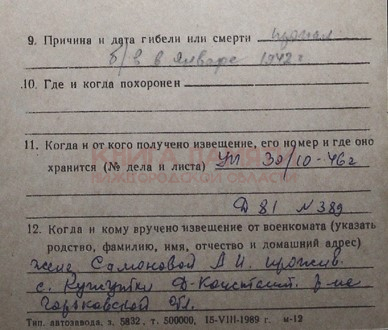 9. Причина и дата гибели или смерти пропал
б/в в январе 1942 г
10. Где и когда похоронен
11. Когда и от кого получено извещение, его номер и где оно
хранится (№ дела и листа) УП 30/10-46г
Д 81 N 389
12. Когда и кому вручено извещение от военкомата (указать
родство, фамилию, имя, отчество и домашний адрес)
жене Самоновой А И. прожив.
с. Кужутки Д-Констант. р-не
Горьковской обл.
Тип. автозавода, з. 5832, т. 500000, 15-VIII-1989 г. м-12